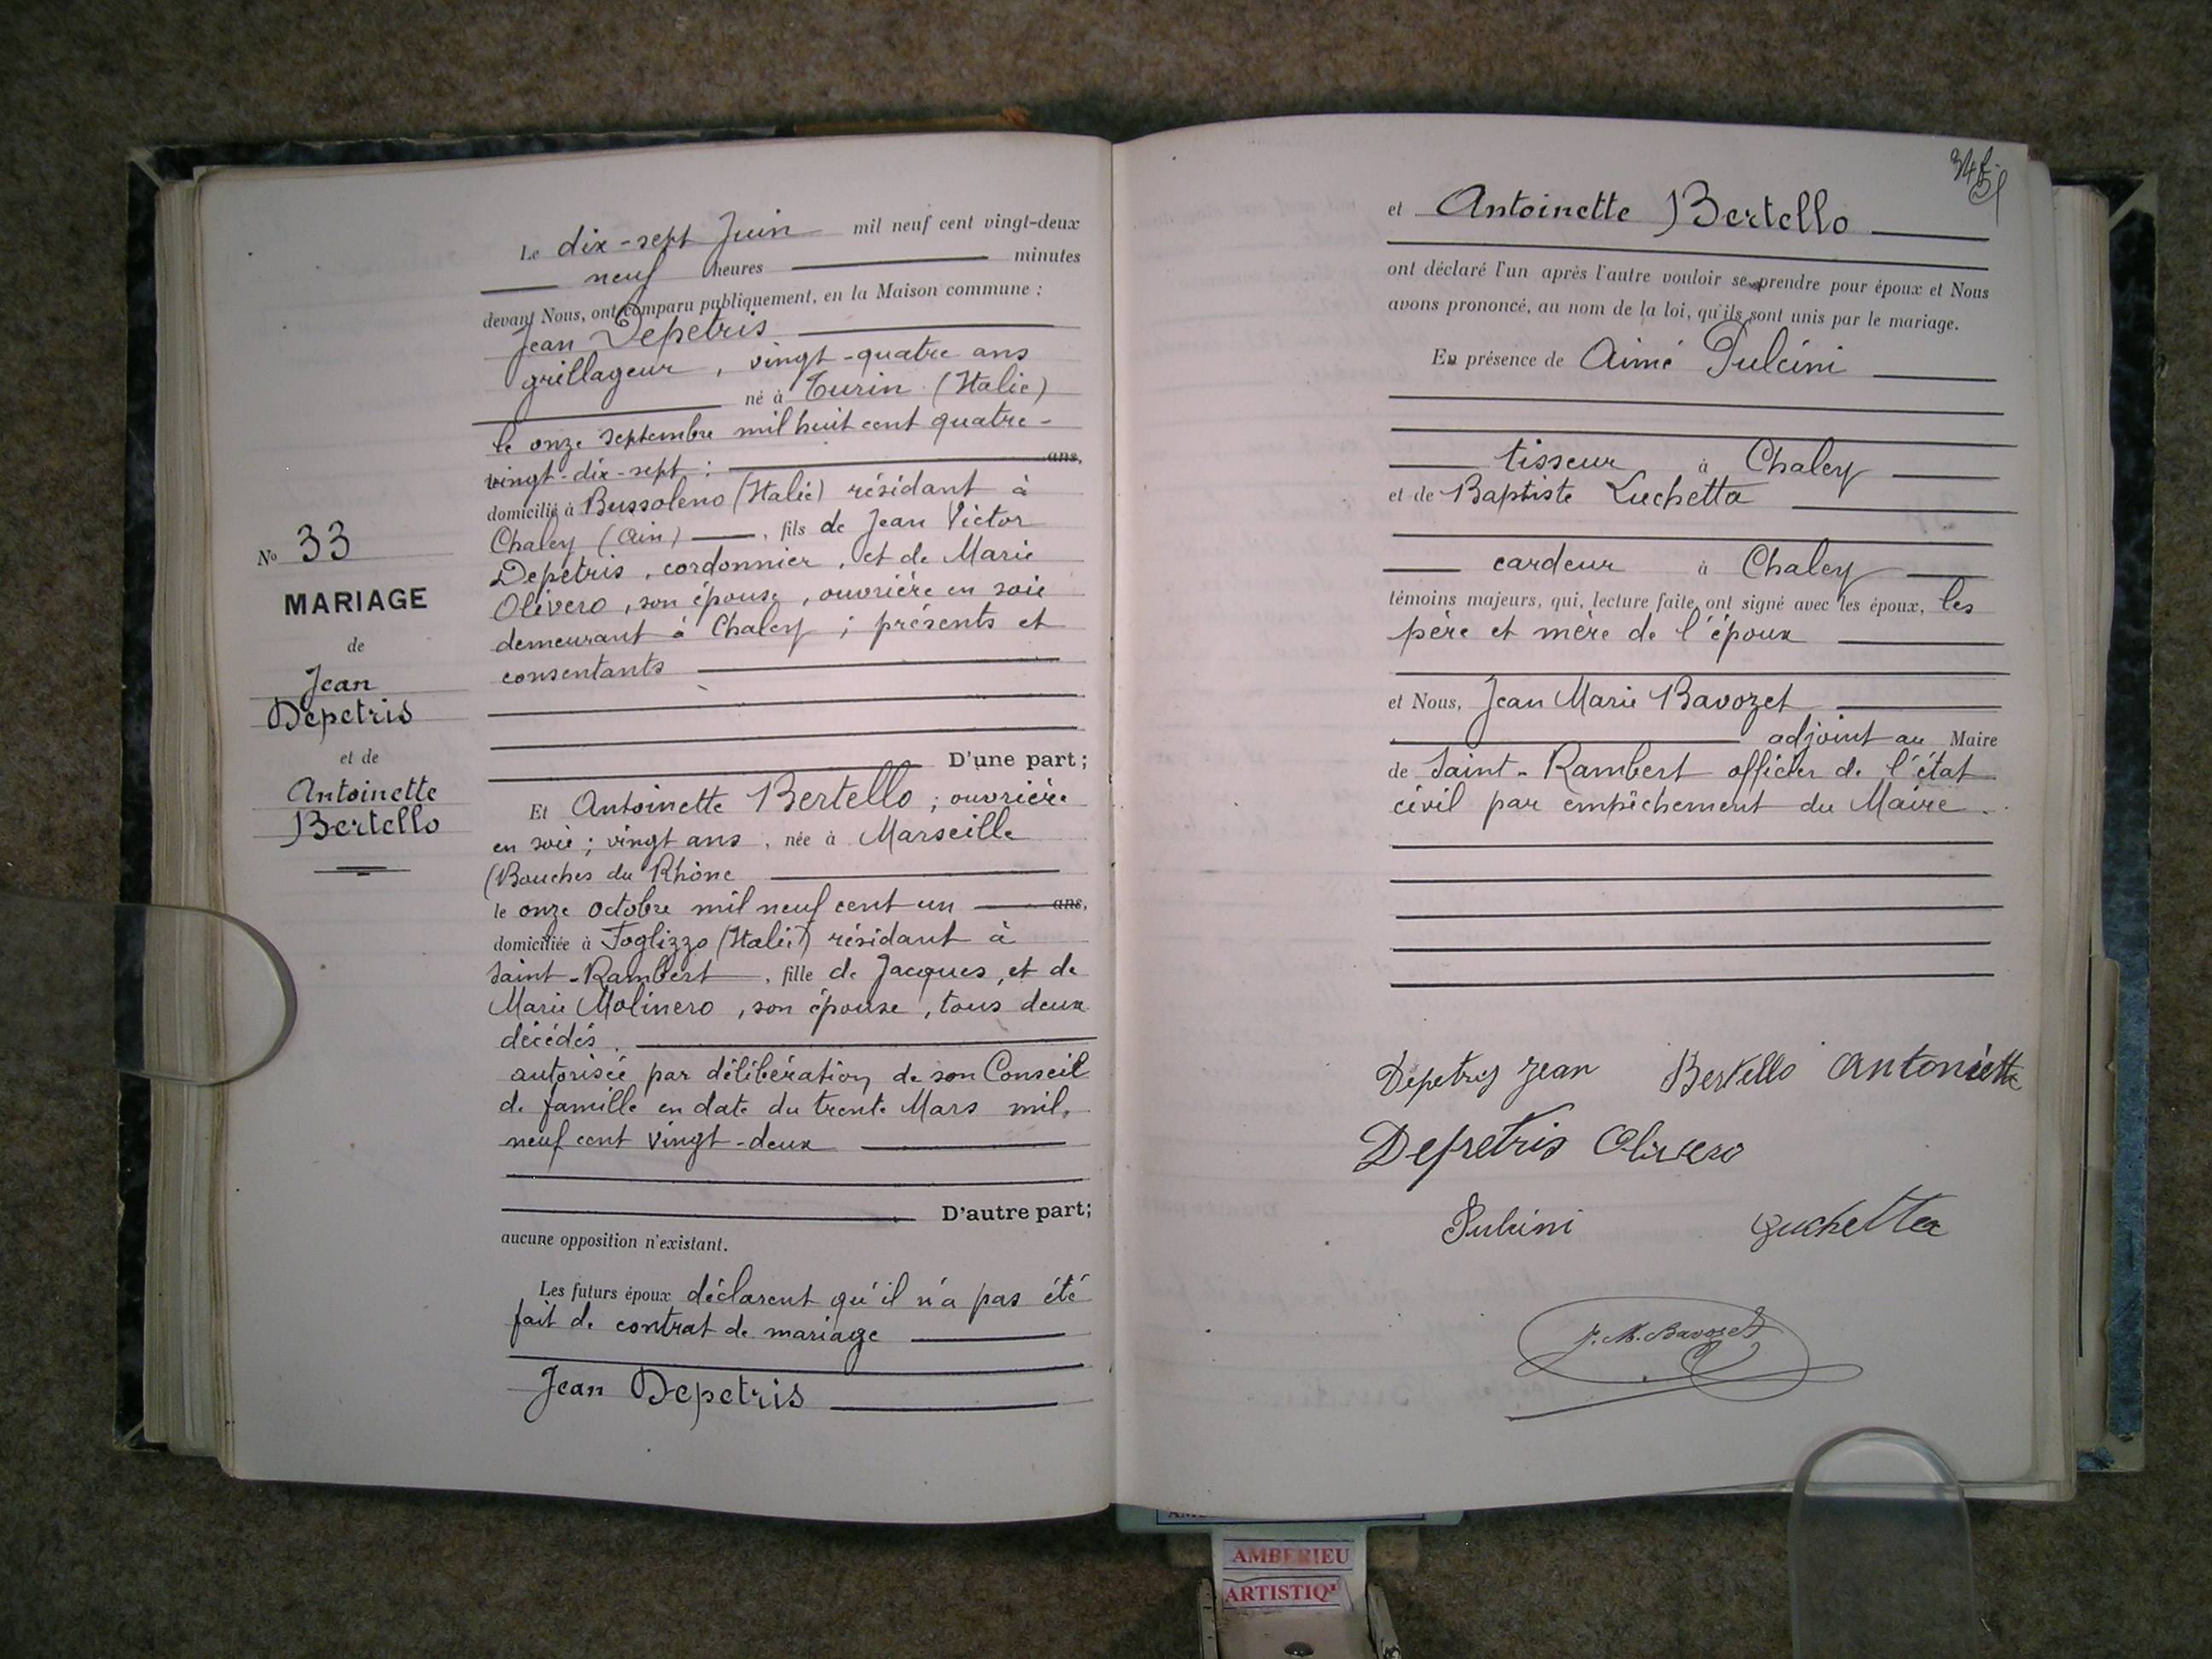 Le dix-sept Juin mil neuf cent vingt-deux
neuf heures minutes
devant Nous, ont comparu publiquement, en la Maison commune :
Jean Depetris
grillageur, vingt-quatre ans
né à Turin (Italie)
le onze septembre mil huit cent quatre-
vingt-dix-sept ; ans,
domicilié à Bussoleno (Italie) résidant à
Chaley (Ain), fils de Jean Victor
Depetris, cordonnier, et de Marie
Olivero, son épouse, ouvrière en soie
demeurant à Chaley ; présents et
consentants
D'une part ;
No 33
MARIAGE
de
Jean
Depetris
et de
Antoinette
Bertello
Et Antoinette Bertello ; ouvrière
en soie ; vingt ans, née à Marseille
(Bouches du Rhône
le onze octobre mil neuf cent un ans,
domiciliée à Foglizzo (Italie) résidant à
Saint-Rambert, fille de Jacques, et de
Marie Molinero, son épouse, tous deux
décédés.
autorisée par délibération de son Conseil
de famille en date du trente Mars mil
neuf cent vingt-deux
D'autre part;
aucune opposition n'existant.
Les futurs époux déclarent qu'il n'a pas été
fait de contrat de mariage
Jean Depetris
et Antoinette Bertello
ont déclaré l'un après l'autre vouloir se prendre pour époux et Nous
avons prononcé, au nom de la loi, qu'ils sont unis par le mariage.
En présence de Aimé Pulcini
tisseur à Chaley
et de Baptiste Luchetta
cardeur à Chaley
témoins majeurs, qui, lecture faite, ont signé avec les époux, les
père et mère de l'époux
et Nous, Jean Marie Bavozet
adjoint au Maire
de Saint-Rambert officier de l'état
civil par empêchement du Maire.
Depetris Jean Bertello Antoniette
Depetris Olivero
Pulcini Luchetta
J. M. Bavozet
AMBERIEU
ARTISTIQ